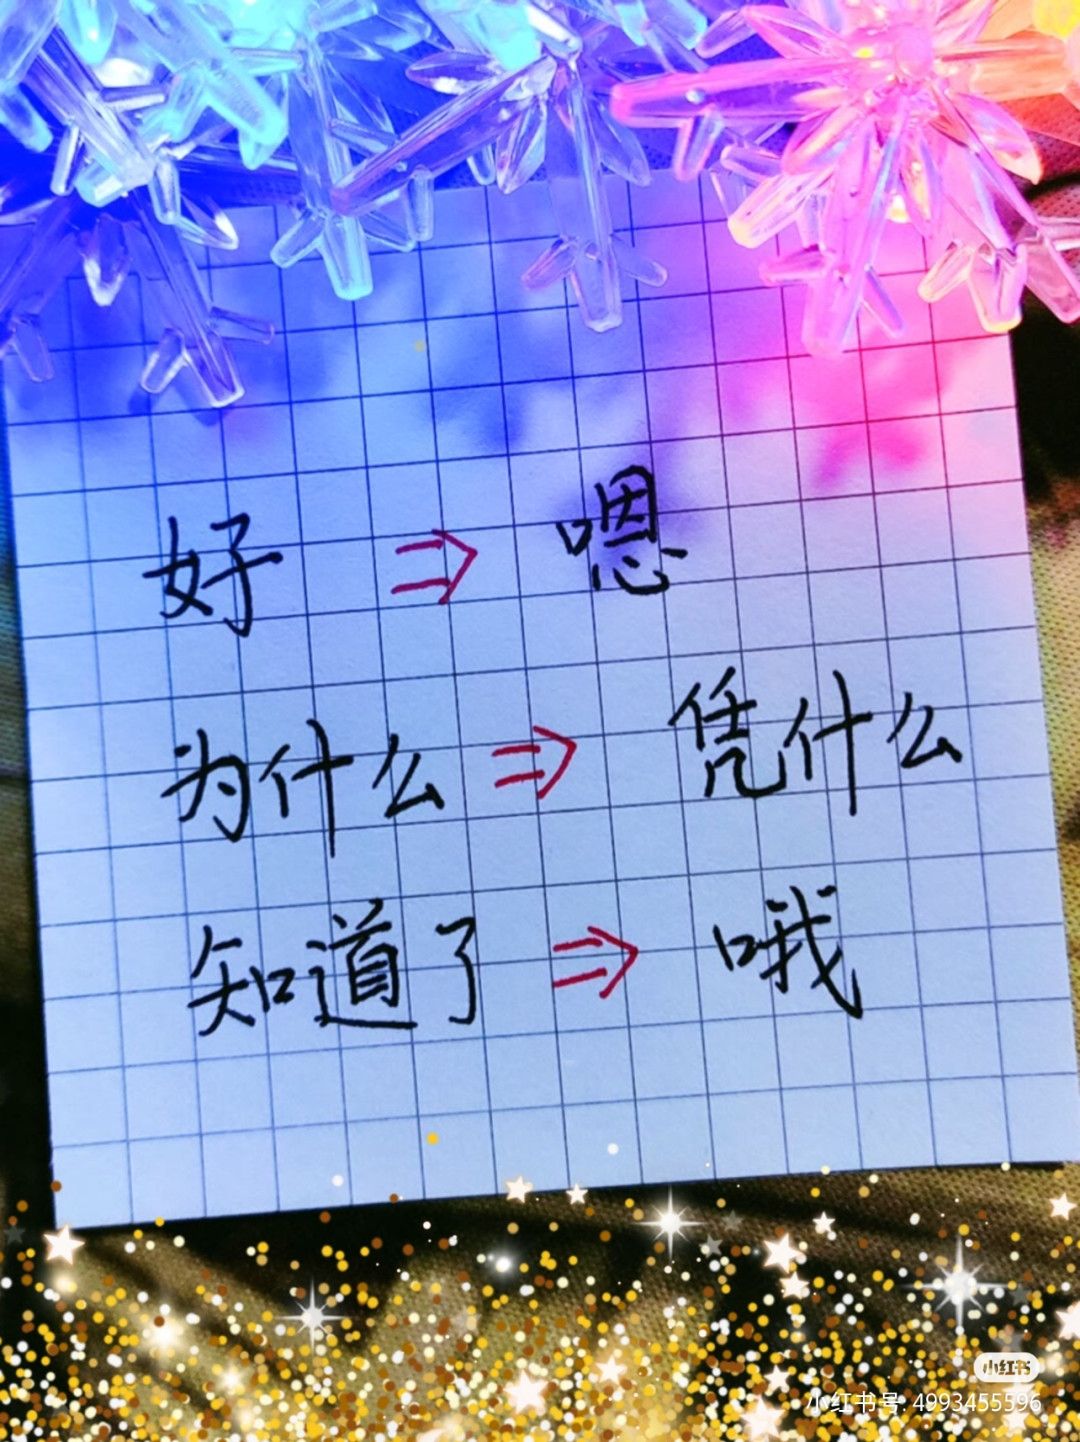 好 ⇒ 嗯
为什么 ⇒ 凭什么
知道了 ⇒ 哦
小红书
小红书号: 4993455596